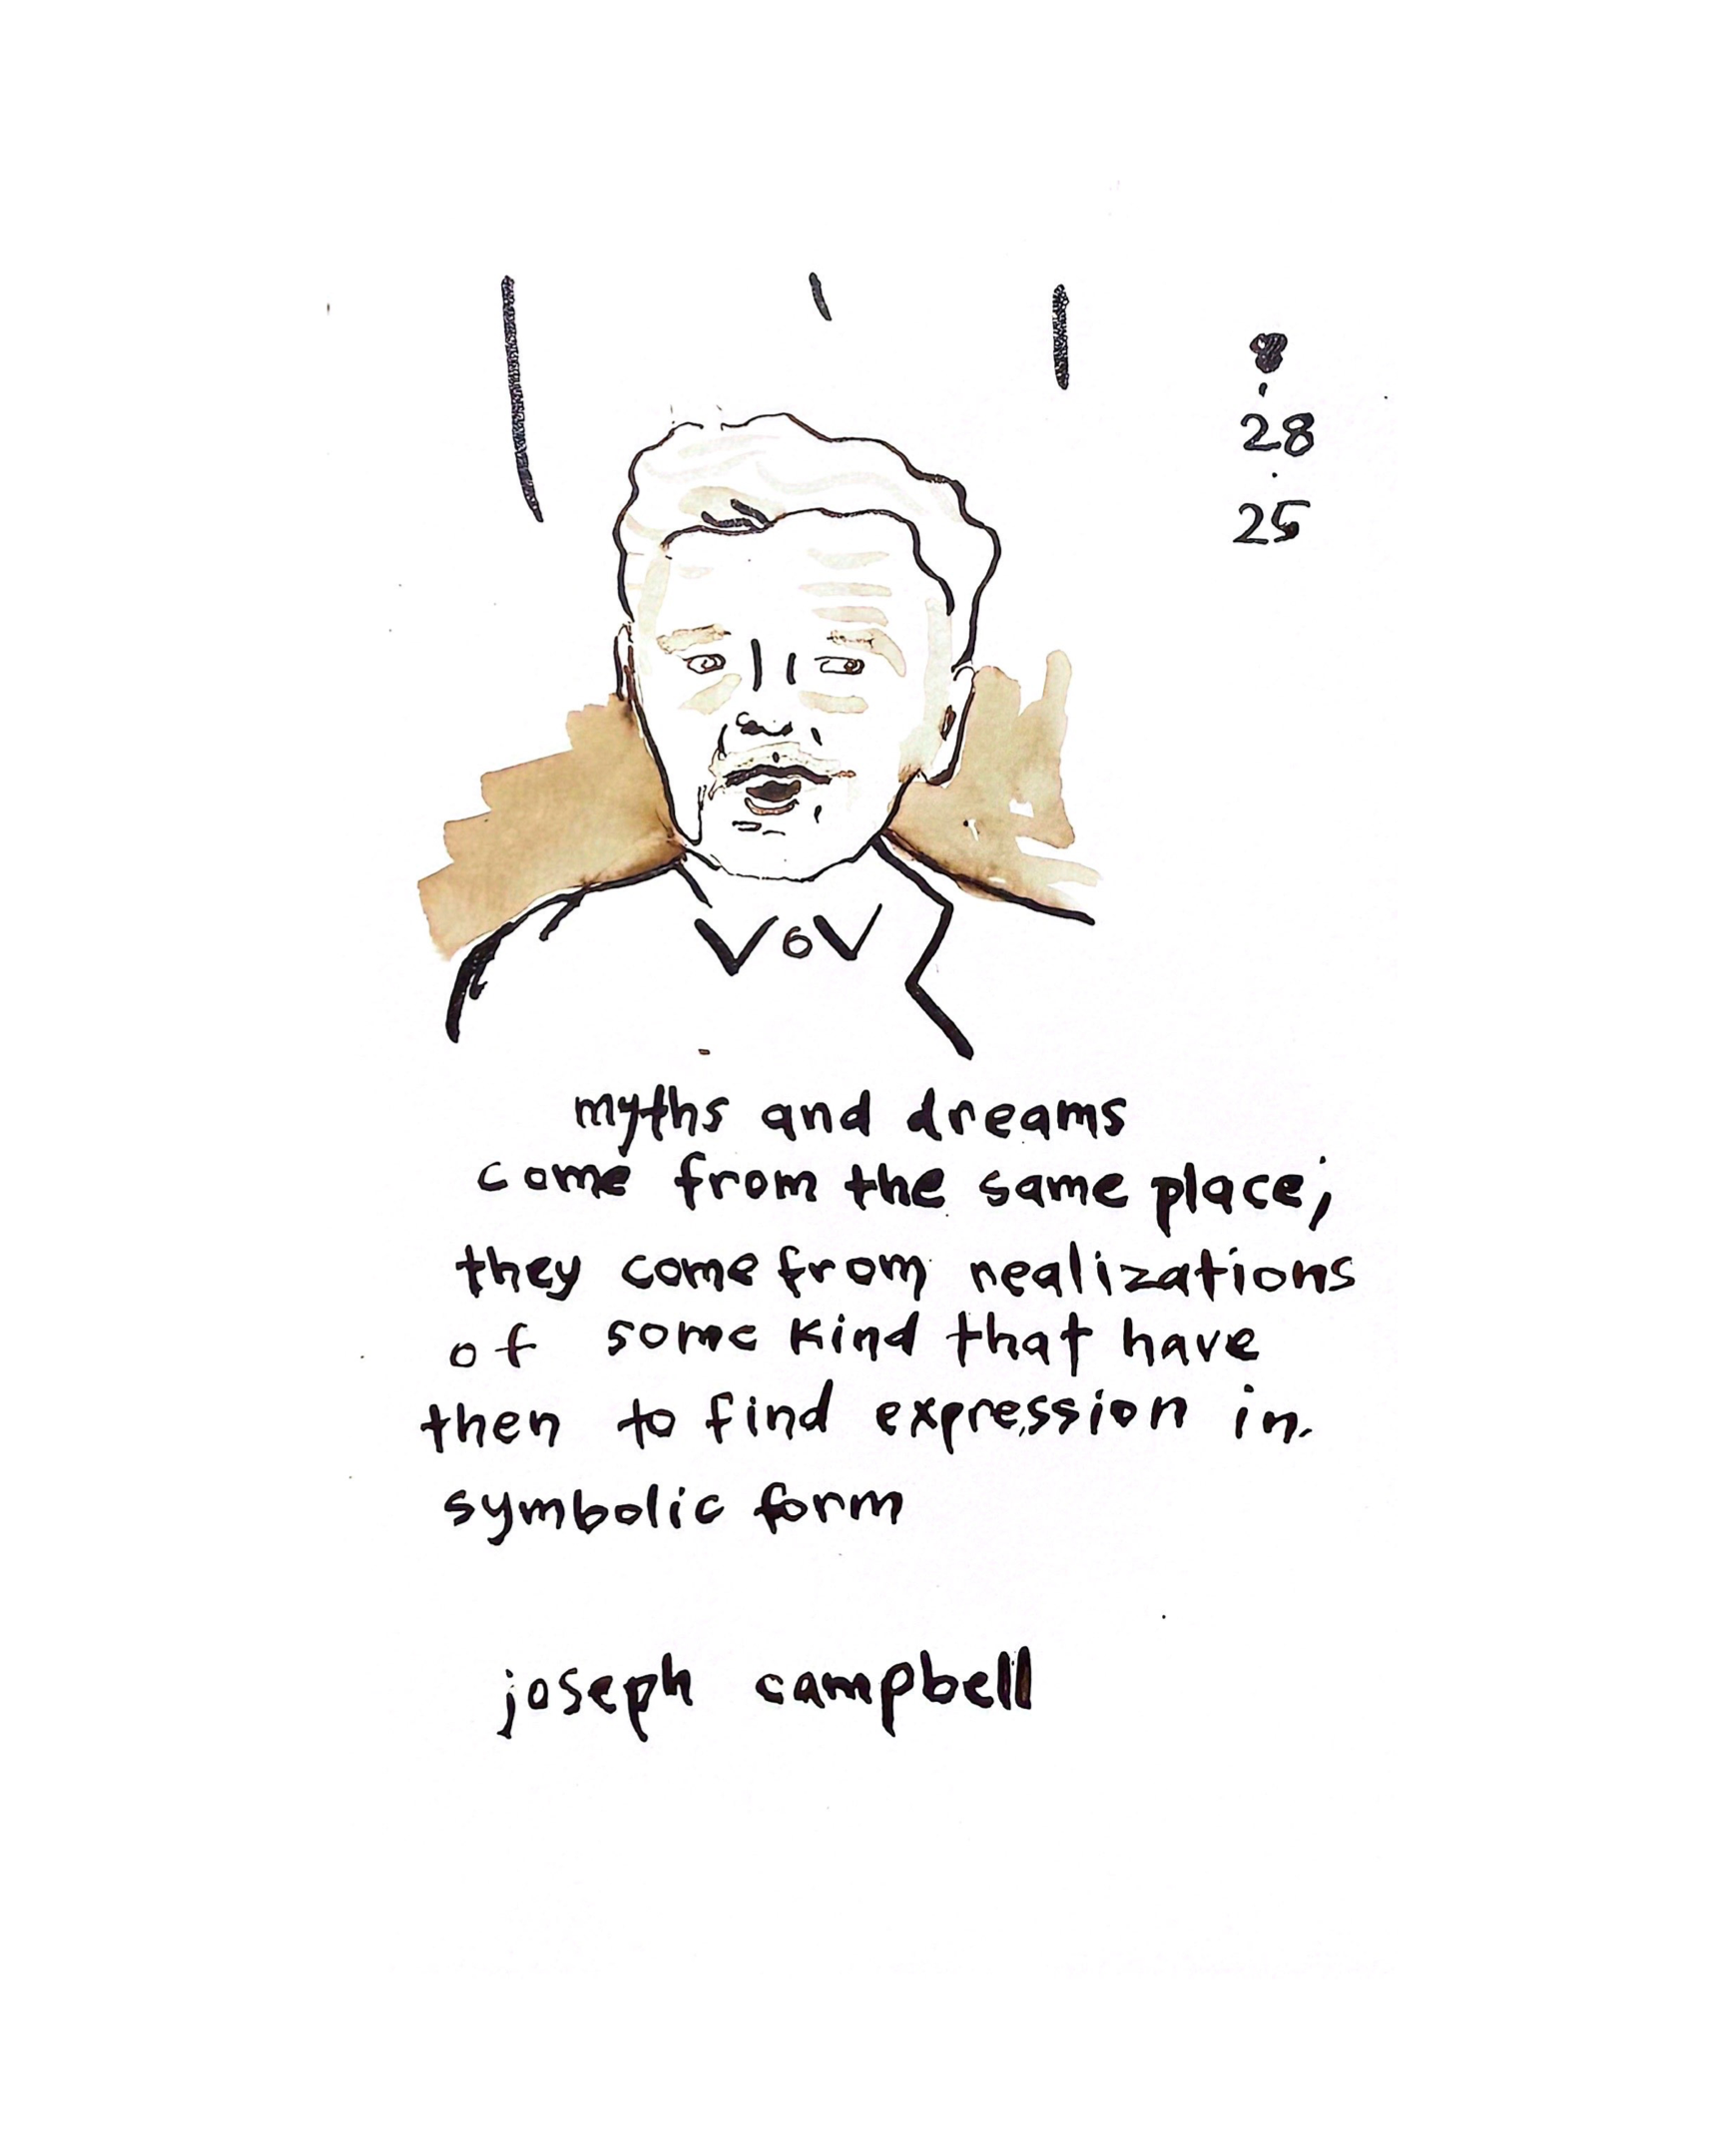 8
28
25
myths and dreams
come from the same place;
they come from realizations
of some kind that have
then to find expression in
symbolic form
joseph campbell